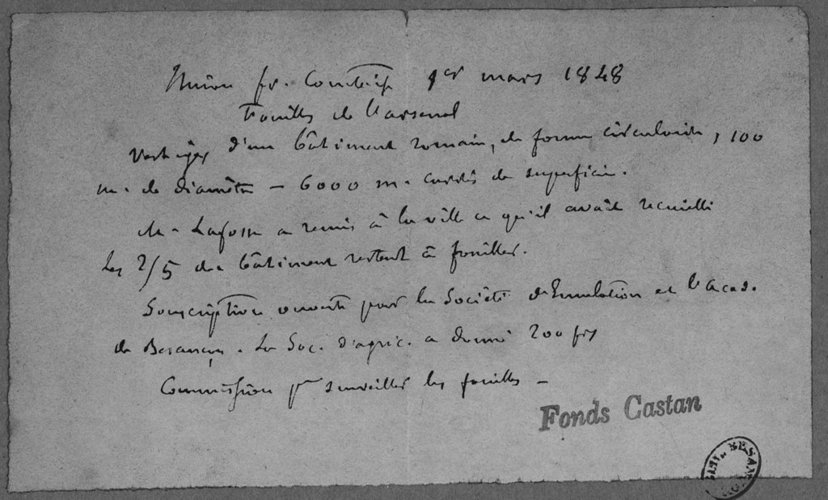 Union fr. comtoise 1er mars 1848
Fouilles de l'arsenal
Vestiges d'un bâtiment romain, de forme circulaire, 100
m. de diamètre – 6000 m. carrés de superficie.
M. Lafosse a remis à la ville ce qu'il avait recueilli
Les 2/5 du bâtiment restent à fouiller.
Souscription ouverte par la Société d'Emulation et l'Acad.
de Besançon. La Soc. d'agric. a donné 200 frs
Commission pr surveiller les fouilles –
Fonds Castan